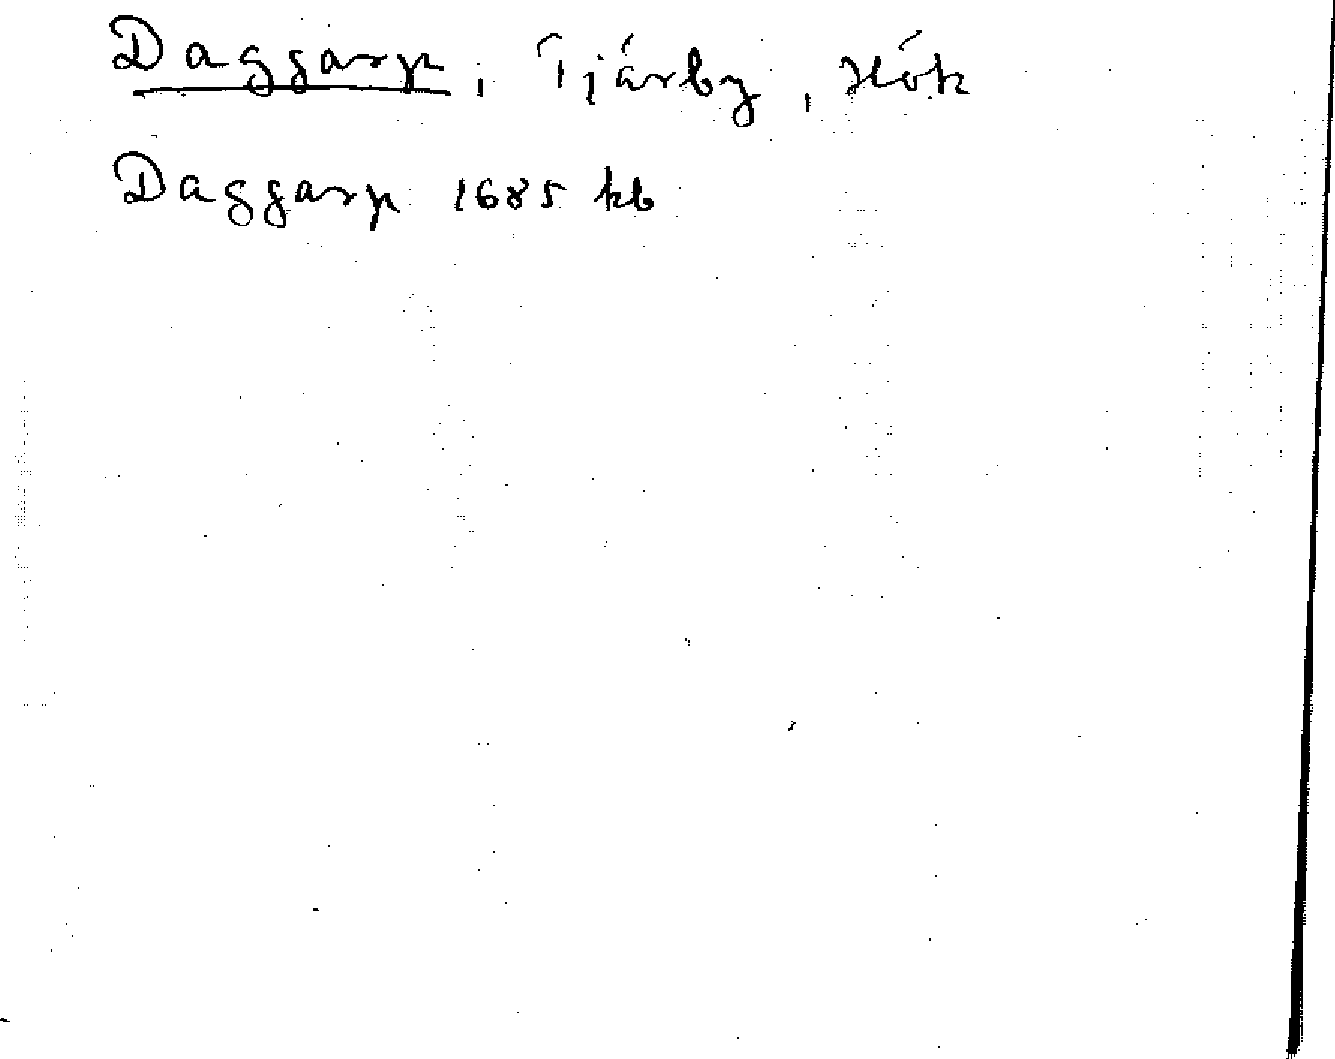 Daggarp, Tjärby, Hök
Daggarp 1685 kb